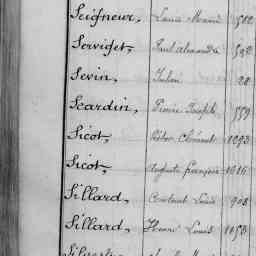 Seigneur, Louis Marie 582
Serviget, Paul Alexandre 532
Sevin, Julien 28
Scardin, Pierre Joseph 559
Sicot, Victor Clément 1093
Sicot, Auguste François 1016
Sillard, Constant Louis 908
Sillard, Henri Louis 1053